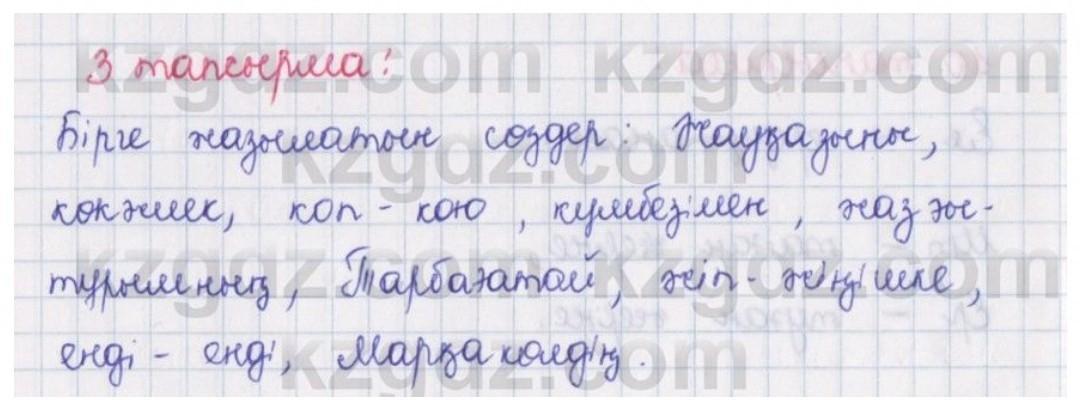 3 тапсырма:
Бірге жазылатын сөздер: Жауқазыны,
көкжиек, көп-кою, күмбезімен, жазғы-
тұрымның, Тарбағатай, жіп-жіңішке,
енді-енді, Марқакөлдің.
kzgdz.com kzgdz.com
kzgdz.com
kzgdz.com kzgdz.com
kzgdz.com